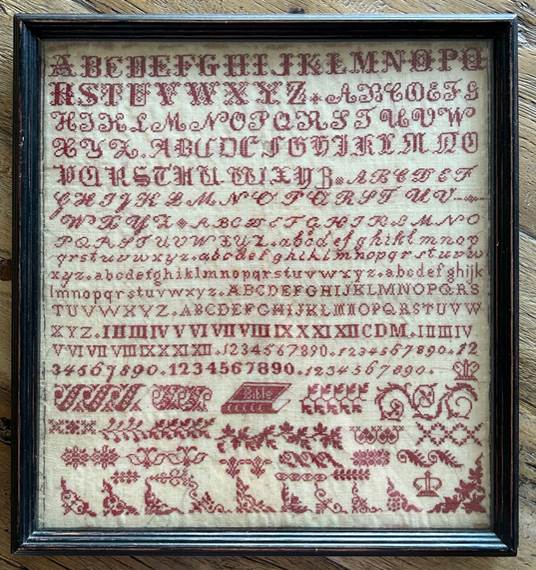 ABCDEFGHIJKLMNOPQ
RSTUVWXYZ. ABCDEFG
HIKLMNOPQRSTUVW
XYZ. ABCDEFGHIKLMNO
PQRSTHUWXYZ. ABCDEF
GHIJKLMNOPQRSTUV
WXYZ ABCDEFGHIKLMNO
PQRSTUVWXYZ. abcdefghiklmnop
qrstuvwxyz. abcdefghiklmnopqrstuvw
xyz. abcdefghiklmnopqrstuvwxyz. abcdefghijk
lmnopqrstuvwxyz. ABCDEFGHIJKLMNOPQRS
TUVWXYZ. ABCDEFGHIKLMNOPQRSTUVW
XYZ. I II III IV V VI VII VIII IX X XI XII C D M. I II III IV
V VI VII VIII IX X XI XII. 1234567890. 1234567890. 12
34567890. 1234567890. 1234567890.
Bible